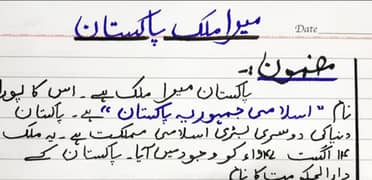 میرا ملک پاکستان
Date
مضمون :۔
پاکستان میرا ملک ہے۔ اس کا پورا
نام "اسلامی جمہوریہ پاکستان" ہے۔ پاکستان
دنیا کی دوسری بڑی اسلامی مملکت ہے۔ یہ ملک
۱۴ اگست ۱۹۴۷ء کو وجود میں آیا۔ پاکستان کے
دارالحکومت کا نام